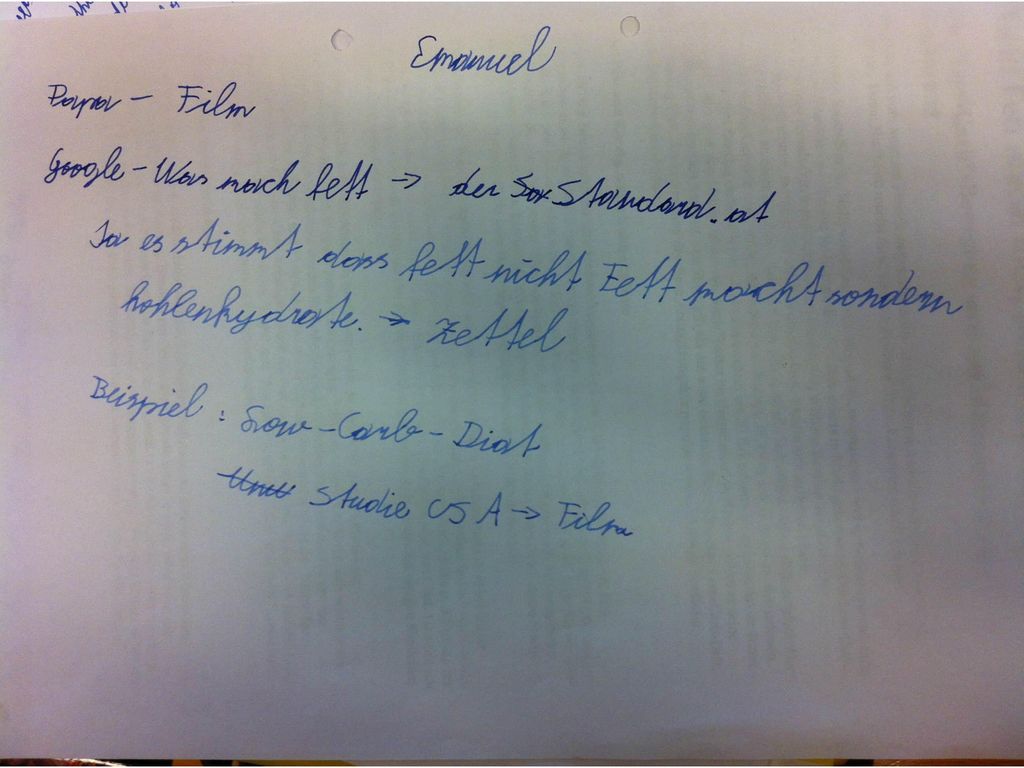 Emanuel
Papa - Film
Google - Was mach fett → der Standard.at
Ja es stimmt dass fett nicht Fett macht sondern
kohlenhydrate. → Zettel
Beispiel : Low-Carb-Diat
Studie USA → Film